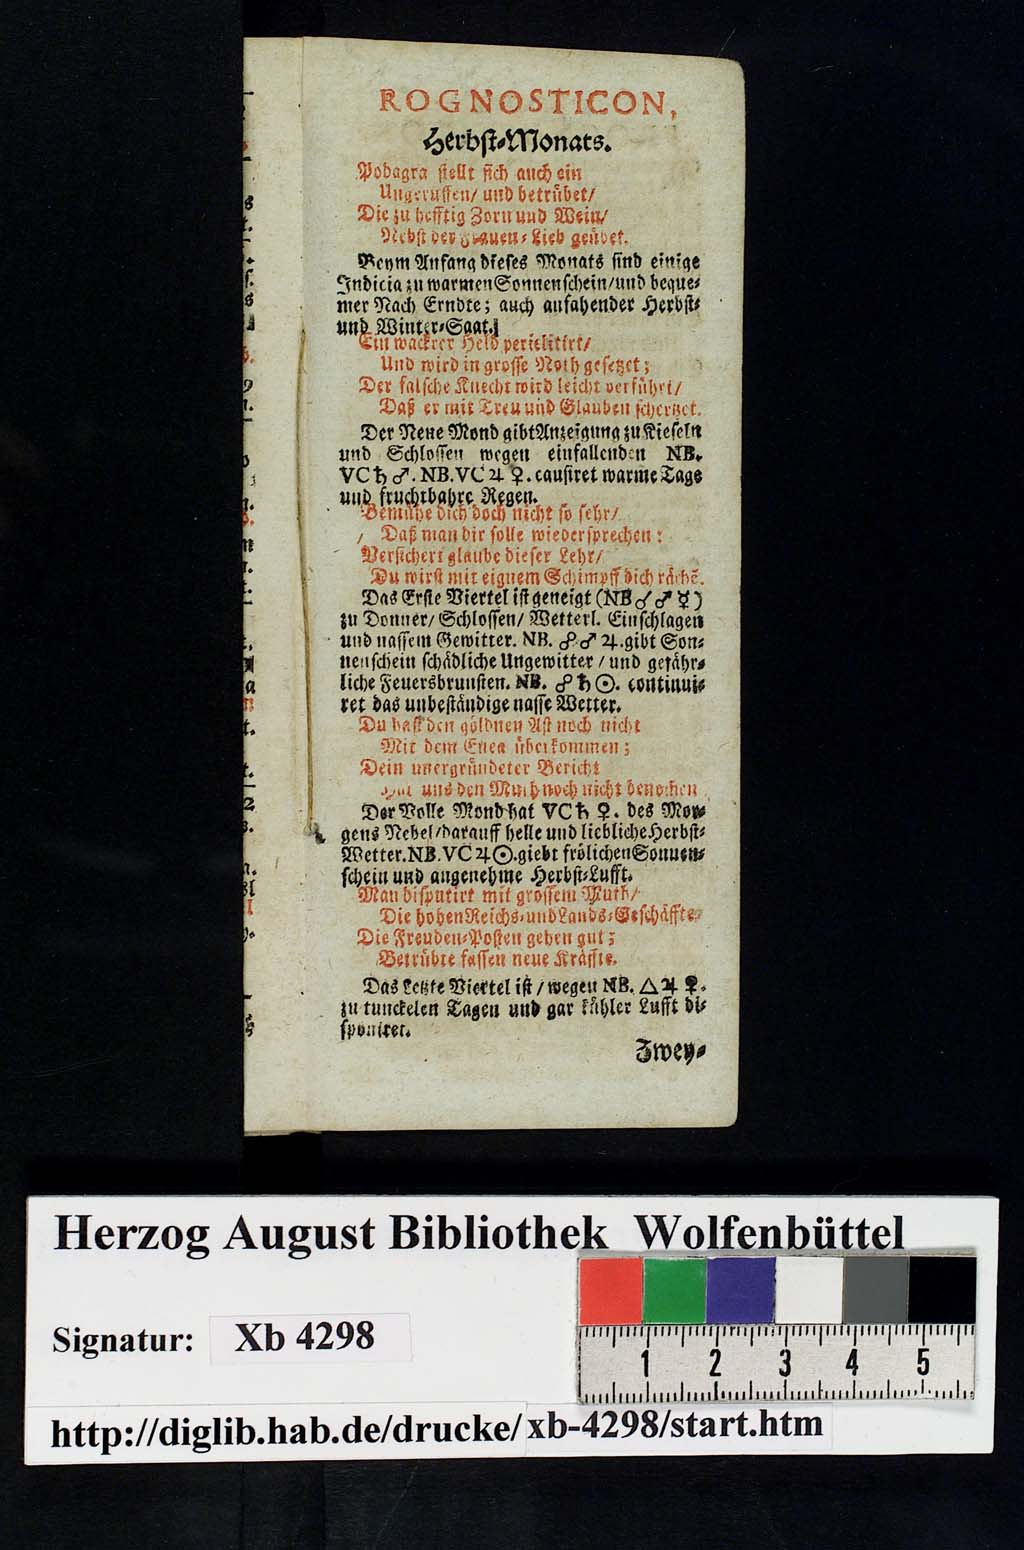 ROGNOSTICON,
Herbst-Monats.
Podagra stellt sich auch ein
Ungeruffen/ und betrübet/
Die zu hefftig Zorn und Wein/
Nebst der Frauen-Lieb geübet.
Beym Anfang dieses Monats sind einige
Indicia zu warmen Sonnenschein/und beque-
mer Nach Erndte; auch anfahender Herbst-
und Winter-Saat.
Ein wackrer Held periclitirt/
Und wird in grosse Noth gesetzet;
Der falsche Knecht wird leicht verführt/
Daß er mit Treu und Glauben schertzet.
Der Neue Mond gibt Anzeigung zu Kieseln
und Schlossen wegen einfallenden NB.
VC ♄ ♂. NB. VC ♃ ♀. causiret warme Tage
und fruchtbahre Regen.
Bemühe dich doch nicht so sehr/
Daß man dir solle wiedersprechen:
Versichert glaube dieser Lehr/
Du wirst mit eignem Schimpff dich rächē.
Das Erste Viertel ist geneigt (NB ☌ ♂ ☿)
zu Donner/ Schlossen/ Wetterl. Einschlagen
und nassem Gewitter. NB. ☍ ♂ ♃. gibt Son-
nenschein schädliche Ungewitter / und gefähr-
liche Feuersbrunsten. NB. ☍ ♄ ☉. continui-
ret das unbeständige nasse Wetter.
Du hast den göldnen Ast noch nicht
Mit dem Enea überkommen;
Dein unergründeter Bericht
Hat uns den Muth noch nicht benommen
Der Volle Mond hat VC ♄ ♀. des Mor-
gens Nebel/darauff helle und liebliche Herbst-
Wetter. NB. VC ♃ ☉. giebt frölichen Sonnen-
schein und angenehme Herbst-Lufft.
Man disputirt mit grossem Muth/
Die hohen Reichs- und Lands-Geschäffte
Die Freuden-Posten gehen gut;
Betrübte fassen neue Kräffte.
Das Letzte Viertel ist / wegen NB. △ ♃ ♀.
zu tunckelen Tagen und gar kühler Lufft di-
sponiret.
Zwey-
Herzog August Bibliothek Wolfenbüttel
Signatur: Xb 4298
1 2 3 4 5
http://diglib.hab.de/drucke/xb-4298/start.htm